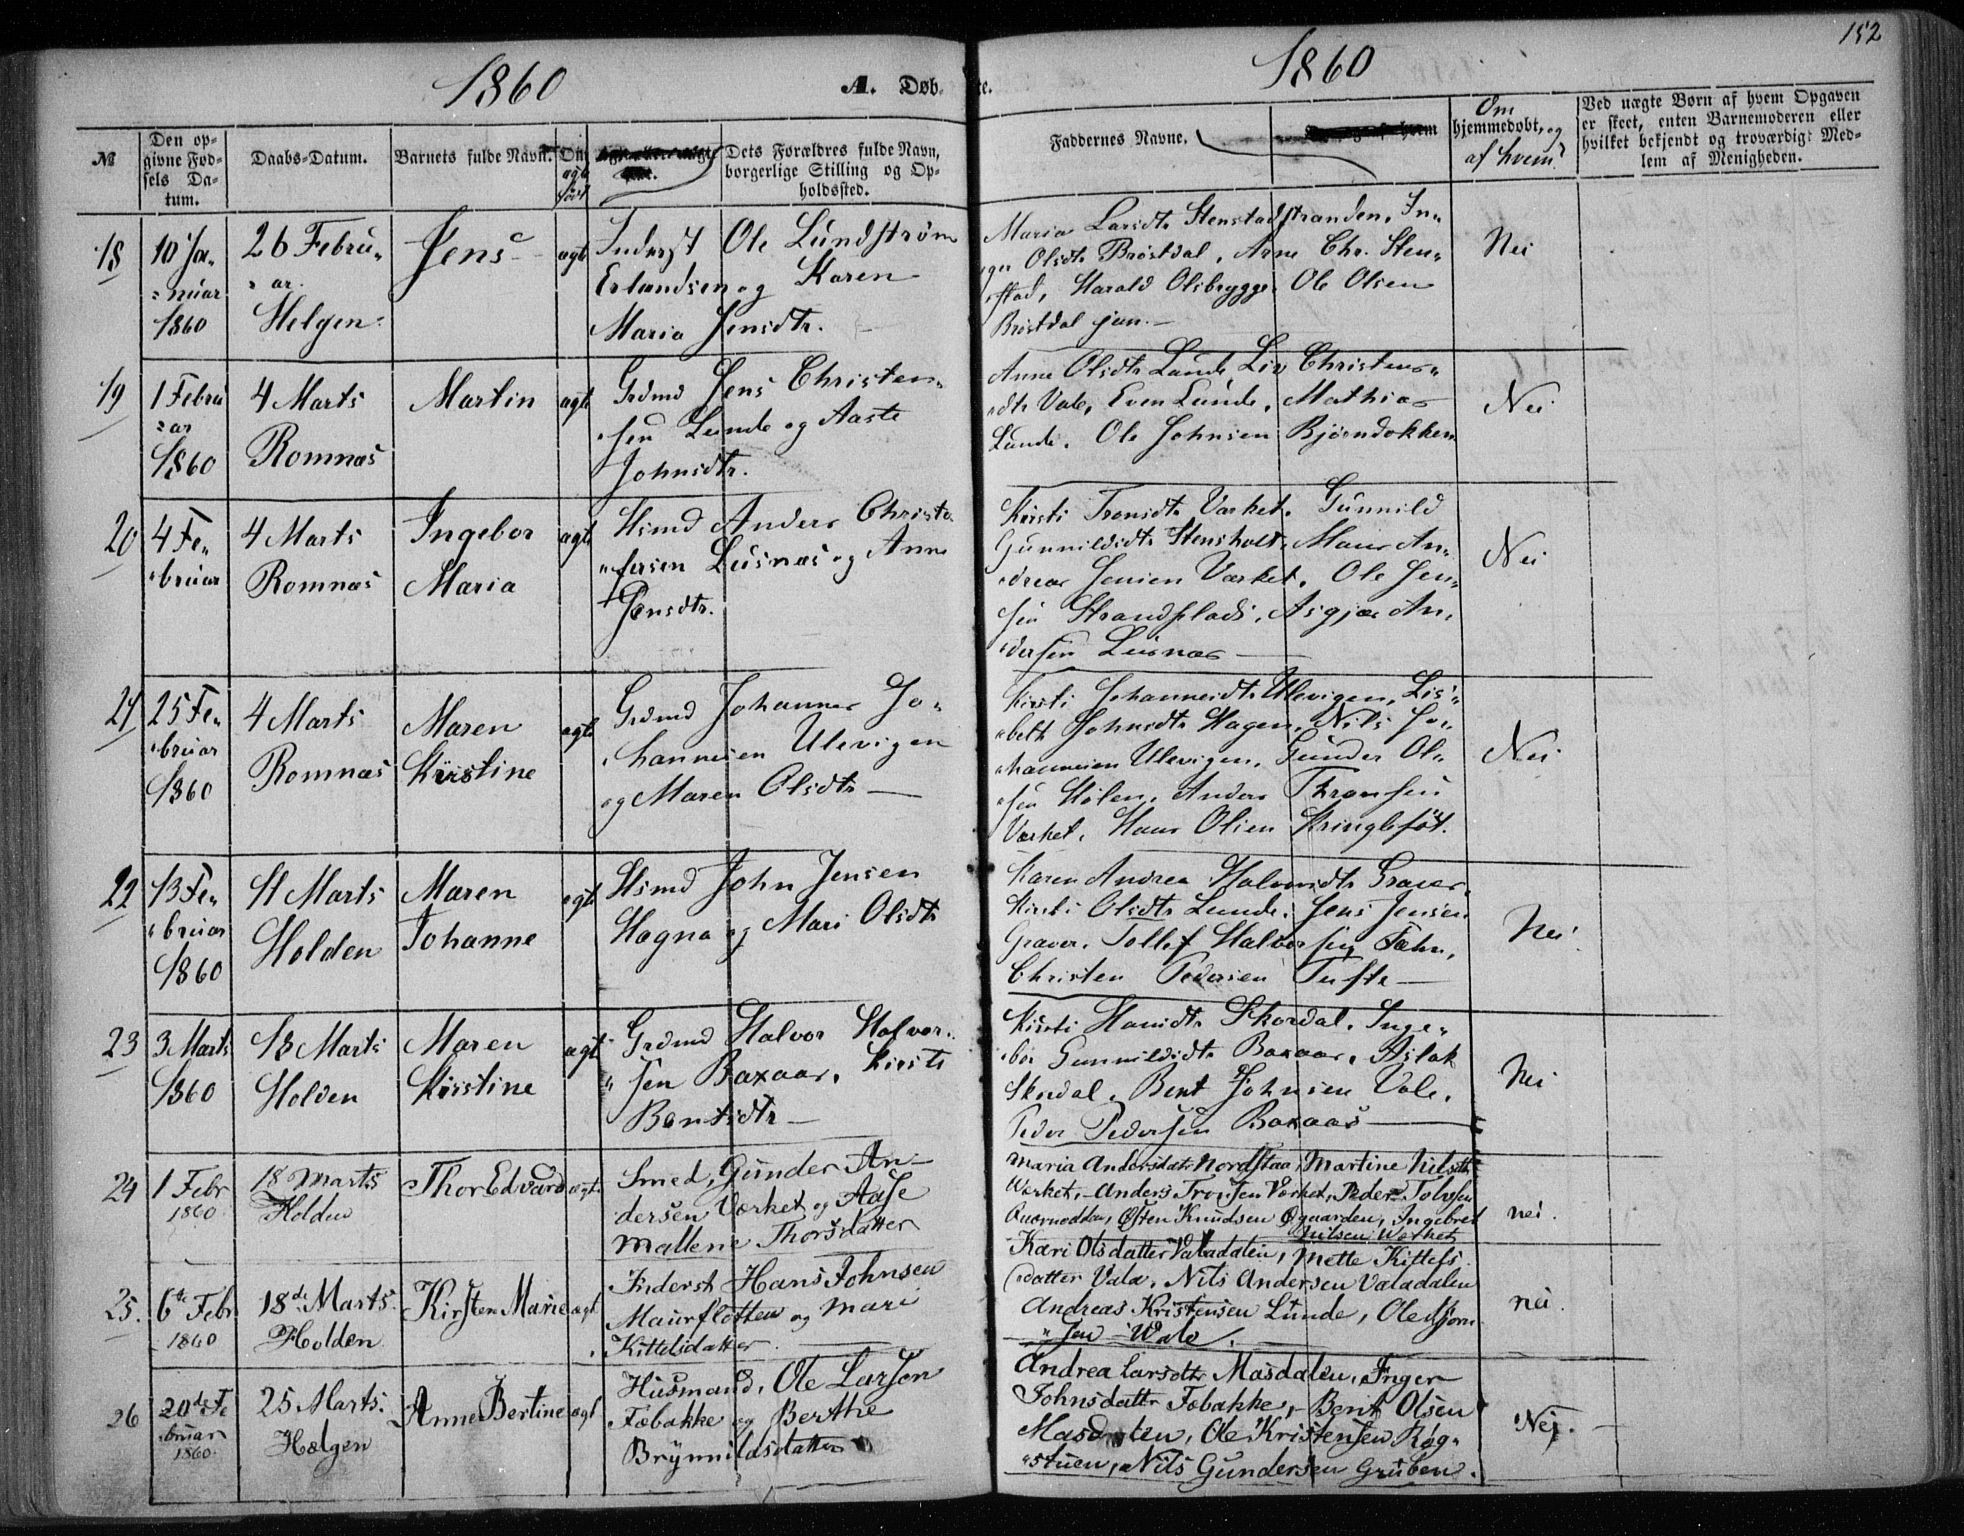 152
1860
A. Døb- te.
1860
№
Den op-
givne Fød-
sels Da-
tum.
Daabs-Datum.
Barnets fulde Navn.
Om
ægte
født
Dets Forældres fulde Navn,
borgerlige Stilling og Op-
holdssted.
Faddernes Navne.
Om
hjemmedøbt, og
af hvem?
Ved uægte Børn af hvem Opgaven
er skeet, enten Barnemoderen eller
hvilket bekjendt og troværdigt Med-
lem af Menigheden.
18
10 Ja-
nuar
1860
26 Febru-
ar.
Helgen
Jens
ægte
Inderst Ole Lundstrøm
Erlandsen og Karen
Maria Jensdtr.
Maria Larsdtr Stenstadstranden, In-
ger Olsdtr Brøstdal, Arne Chr. Sten-
stad, Harald Olsbrygge Ole Olsen
Brøstdal jun.
Nei
19
1 Febru
ar
1860
4 Marts
Romnæs
Martin
ægte
Grdmd Jens Christen-
sen Lunde og Aaste
Johnsdtr.
Anne Olsdtr Lunde Liv Christens-
dtr Vale, Even Lunde, Mathias
Lunde, Ole Johnsen Bjørndokken
Nei
20
4 Fe-
bruar
4 Marts
Romnæs
Ingebor
Maria
ægte
Hsmd Anders Christo
fersen Lusnæs og Anne
Jensdtr.
Kirsti Tronsdtr Værket, Gunnild
Gunnildsdtr Stensholt, Maur An-
dreas Jensen Værket, Ole Jen-
sen Strandplads, Asgjær An-
dersen Lusnæs
Nei
21
25 Fe-
bruar
1860
4 Marts
Romnæs
Maren
Kirstine
ægte
Grdmd Johannes Jo-
hannesen Ulevigen
og Maren Olsdtr
Kirsti Johannesdtr Ulevigen, Lis-
beth Johnsdtr Hagen, Nils Jo-
hannesen Ulevigen, Gunder Ol-
sen Hølen, Anders Thronsen
Værket, Hans Olsen Kringlefôt.
Nei
22
13 Fe-
bruar
1860
11 Marts
Holden
Maren
Johanne
ægte
Hsmd John Jensen
Hogna og Mari Olsdtr
Karen Andrea Halvorsdtr Graver
Kirsti Olsdtr Lunde, Jens Jensen
Graver, Tollef Halvorsen Fæhn,
Christen Pedersen Tufte
Nei
23
3 Marts
1860
18 Marts
Holden
Maren
Kirstine
ægte
Grdmd Halvor Halvor-
sen Baxaas, Kirsti
Bentsdtr
Kirsti Hansdtr Skordal, Inge-
bor Gunnildsdtr Baxaas, Aslak
Skordal, Bent Johnsen Vale,
Peder Pedersen Baxaas
Nei
24
1 Febr
1860
18 Marts
Holden
Thor Edvard
ægte
Smed, Gunder An-
dersen Værket og Aase
Mallene Thorsdatter
Maria Andersdatr Nordstaa, Martine Nilsdtr
Værket, Anders Tronsen Værket, Peder Tolvsen
Qværnodden, Østen Knudsen Øgaarden, Ingebret
Nilsen Værket
nei.
25.
6te Febr
1860
18de Marts.
Holden
Kirsten Marie
ægt
Inderst Hans Johnsen
Maurflotten og Mari
Kittelsdatter
Kari Olsdatter Valadalen, Mette Kittels
datter Vala, Nils Andersen Valadalen
Andreas Kristensen Lunde, Ole Bjørn
sen Wale.
nei.
26
20de Fe
bruar
1860.
25 Marts.
Hælgen
Anne Bertine
ægt
Husmand, Ole Larsen
Fæbakke og Berthe
Brynnildsdatter
Andrea Larsdtr Masdalen, Inger
Johnsdatter Fæbakke, Bent Olsen
Masdalen, Ole Kristensen Røg-
stuen, Nils Gundersen Gruben.
Nej.